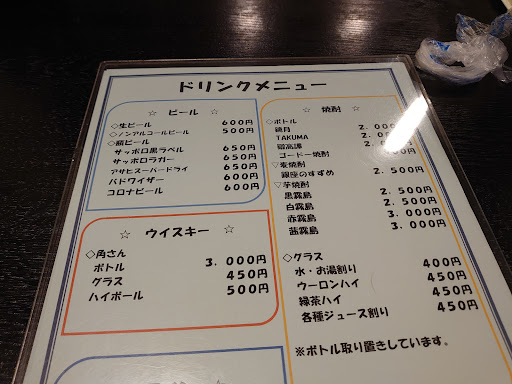 ドリンクメニュー
☆ ビール ☆
◇生ビール 600円
◇ノンアルコールビール 500円
◇瓶ビール
サッポロ黒ラベル 650円
サッポロラガー 650円
アサヒスーパードライ 650円
バドワイザー 600円
コロナビール 600円
☆ ウイスキー ☆
◇角さん
ボトル 3.000円
グラス 450円
ハイボール 500円
☆ 焼酎 ☆
◇ボトル
鏡月 2.000円
TAKUMA 2.000円
御高譚
ゴードー焼酎
▽麦焼酎
銀座のすずめ 2.500円
▽芋焼酎
黒霧島 2.500円
白霧島 2.500円
赤霧島 3.000円
茜霧島 3.000円
◇グラス
水・お湯割り 400円
ウーロンハイ 450円
緑茶ハイ 450円
各種ジュース割り 450円
※ボトル取り置きしています。